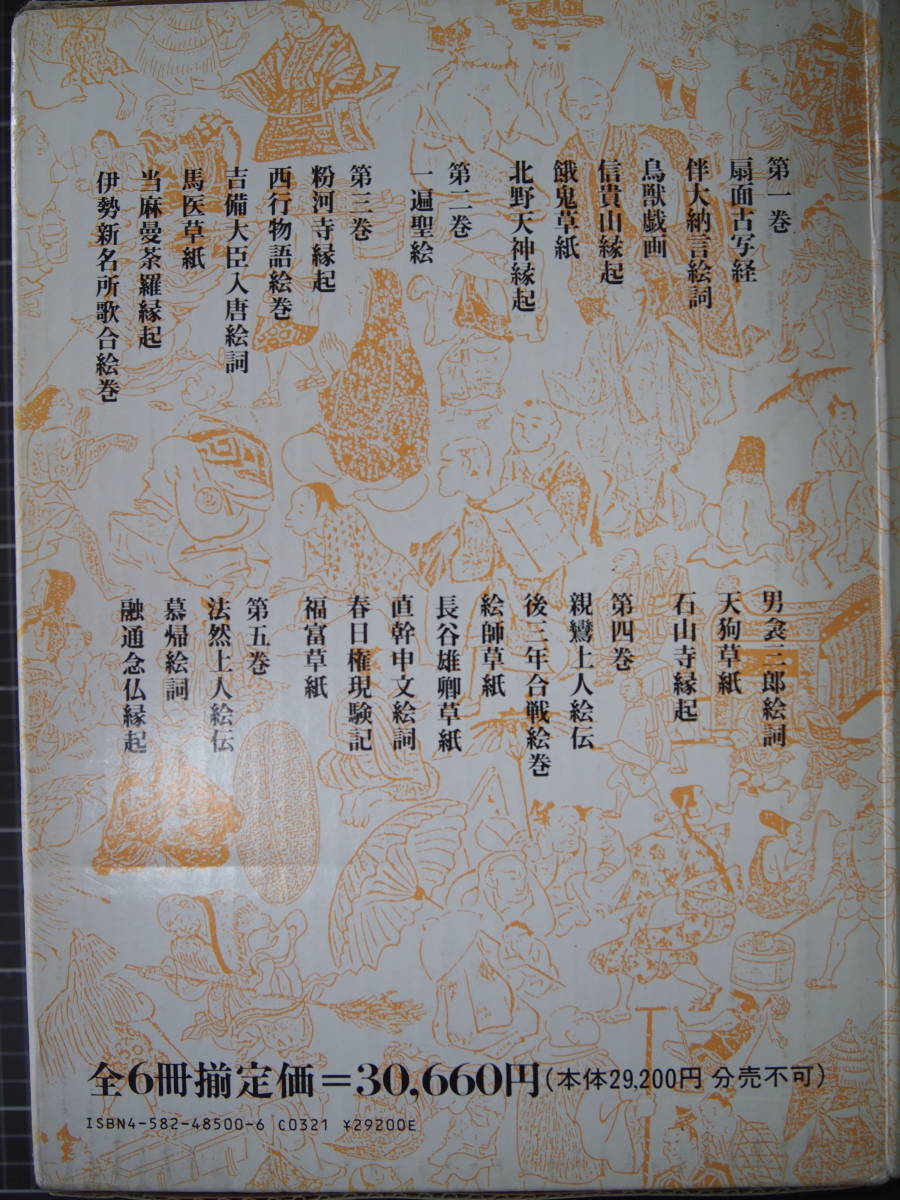 第一巻
扇面古写経
伴大納言絵詞
鳥獣戯画
信貴山縁起
餓鬼草紙
北野天神縁起
第二巻
一遍聖絵
第三巻
粉河寺縁起
西行物語絵巻
吉備大臣入唐絵詞
馬医草紙
当麻曼荼羅縁起
伊勢新名所歌合絵巻
男衾三郎絵詞
天狗草紙
石山寺縁起
第四巻
親鸞上人絵伝
後三年合戦絵巻
絵師草紙
長谷雄卿草紙
直幹申文絵詞
春日権現験記
福富草紙
第五巻
法然上人絵伝
慕帰絵詞
融通念仏縁起
全6冊揃定価=30,660円(本体29,200円 分売不可)
ISBN4-582-48500-6 C0321 ¥29200E